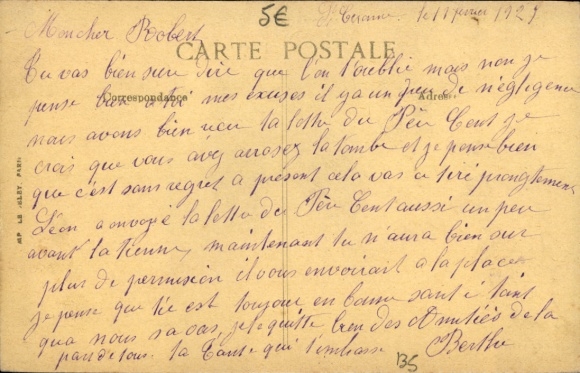 5€
le 11 février 192
Mon cher Robert
CARTE POSTALE
Tu vas bien sur dire que l'on t'oublie mais non je
pense bien a toi mes excuses il y a un peu de négligence
Correspondance
Adresse
nous avons bien reçu la lettre du Père Cent je
crois que vous avez arosez la tombe et je pense bien
que c'est sans regret a présent cela vas ce tiré promptement
Léon a envoyé la lettre du Père Cent aussi un peu
avant la tienne, maintenant tu n'aura bien sur
plus de permission il vous envoirait a la place
je pense que tu est toujour en bonne santé tant
qua nous sa vas, je te quitte bien des Amitiés de la
par de tous. ta Tante qui t'embrasse Berthe
BS
IMP. LE DELEY, PARIS